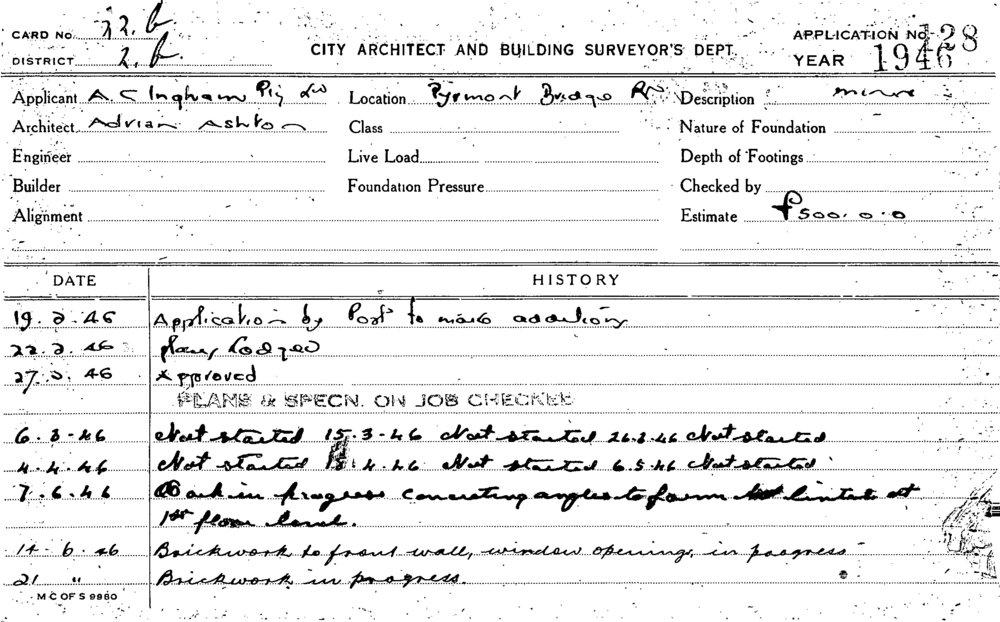 CARD No. 22.b
DISTRICT 2.b.
CITY ARCHITECT AND BUILDING SURVEYOR'S DEPT.
APPLICATION No. 128
YEAR 1946
Applicant A.C Ingham Pty Ltd Location Pyrmont Bridge Rd Description minor
Architect Adrian Ashton Class Nature of Foundation
Engineer Live Load Depth of Footings
Builder Foundation Pressure Checked by
Alignment Estimate £500.0.0
DATE HISTORY
19.2.46 Application by Post to make additions
22.2.46 plans Lodged
27.2.46 Approved
PLANS & SPECN. ON JOB CHECKED
6.3.46 Not started 15.3.46 Not started 26.3.46 Not started
4.4.46 Not started 4.46 Not started 6.5.46 Not started
7.6.46 Work in progress concreting angles to form lintels at
1st floor level.
14.6.46 Brickwork to front wall, window opening, in progress
21 " Brickwork in progress.
M C OF S 9980